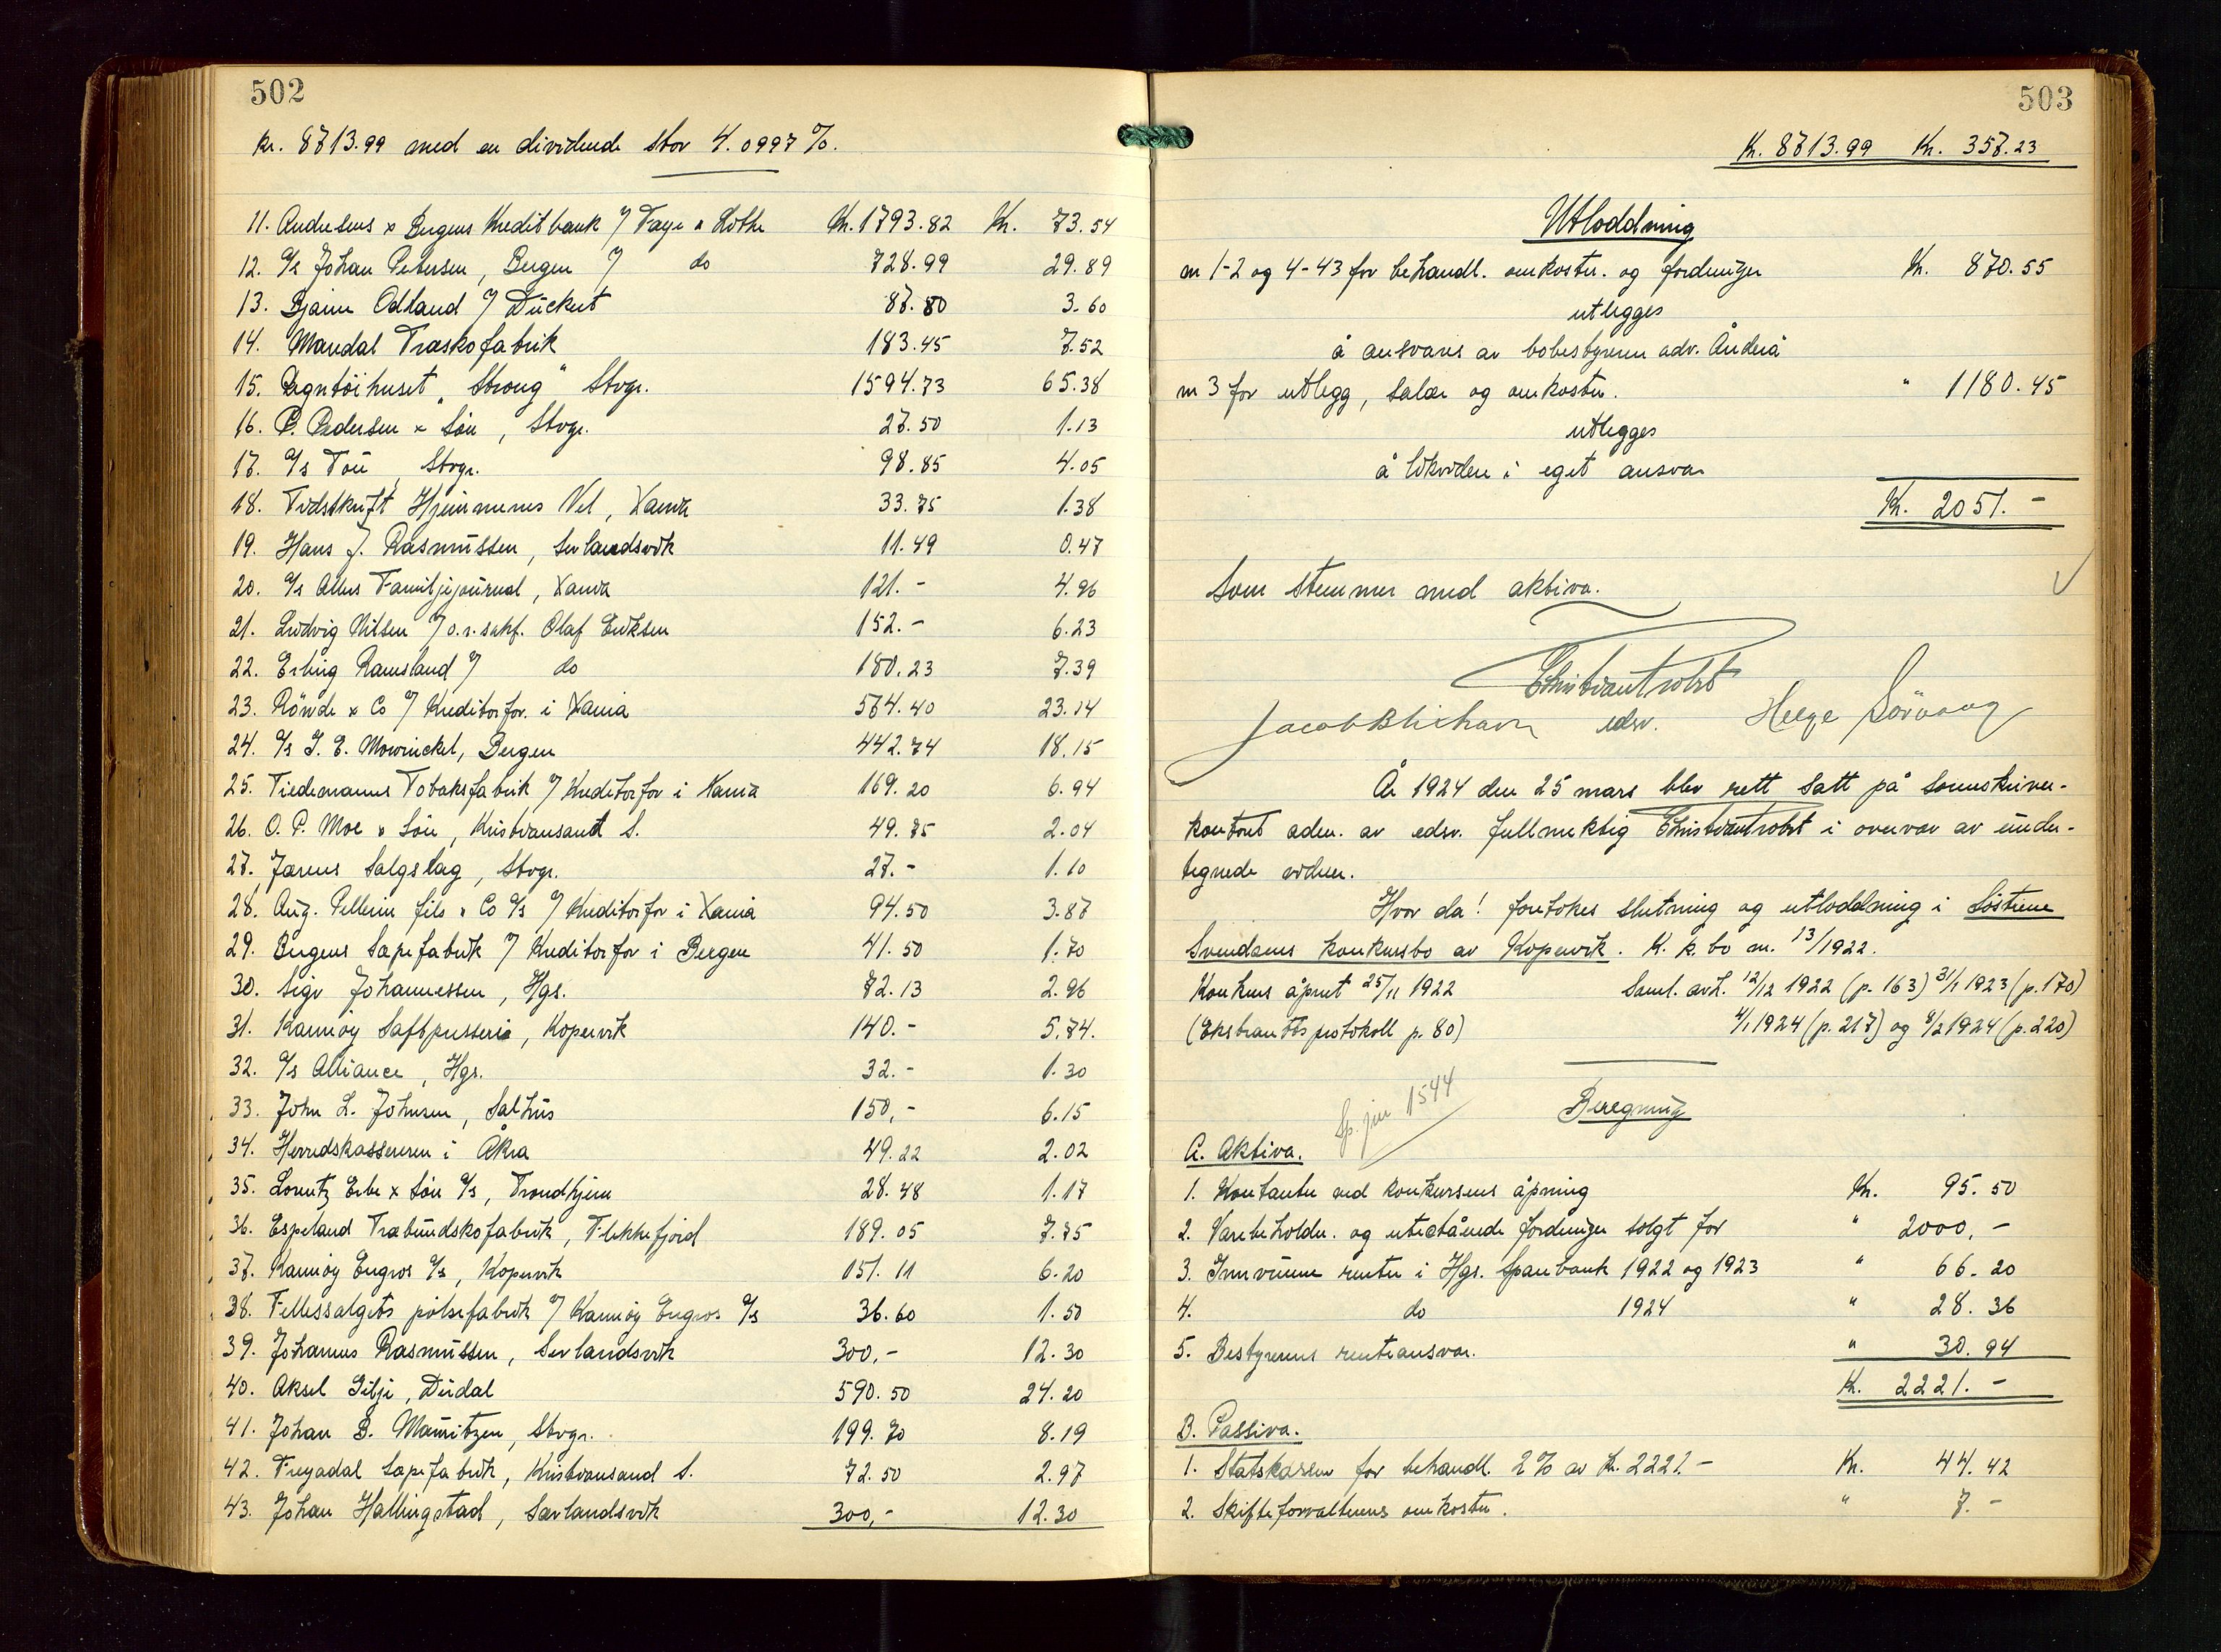 502
kr. 8713.99 med en dividende stor 4.0997 %.
11. Andresens & Bergens Kreditbank v/ Faye & Lothe Kr. 1793.82 Kr. 73.54
12. A/s Johan Petersen, Bergen v/ do 728.99 29.89
13. Bjarne Odland v/ Dückert 87.80 3.60
14. Mandal Træskofabrik 183.45 7.52
15. Regntöihuset "Strong" Stvgr. 1594.73 65.38
16. P. Pedersen & Sön, Stvgr. 27.50 1.13
17. A/s Tou, Stvgr. 98.85 4.05
18. Tidsskrift Hjemmenes Vel, Xania 33.75 1.38
19. Hans J. Rasmussen, Sevlandsvik 11.49 0.47
20. A/s Allers Familjejournal, Xania 121.- 4.96
21. Ludvig Nilsen v/ o.r.sakf. Olaf Eriksen 152.- 6.23
22. Erling Ramsland v/ do 180.23 7.39
23. Röwde & Co v/ Kreditorfor. i Xania 564.40 23.14
24. A/s J. E. Mowinckel, Bergen 442.74 18.15
25. Tiedemanns Tobaksfabrik v/ Kreditorfor i Xania 169.20 6.94
26. O. P. Moe & Sön, Kristiansand S. 49.75 2.04
27. Jærens Salgslag, Stvgr. 27.- 1.10
28. Aug. Pellerin fils & Co A/s v/ Kreditorfor i Xania 94.50 3.87
29. Bergens Sæpefabrik v/ Kreditorfor i Bergen 41.50 1.70
30. Sigv Johannessen, Hgs. 72.13 2.96
31. Karmöy Saftpresseri, Kopervik 140.- 5.74.
32. A/s Alliance, Hgs. 32.- 1.30
33. John L. Johnsen, Salhus 150,- 6.15
34. Herredskassereren i Åkra 49.22 2.02
35. Lorentz Erbe & Sön A/s, Trondhjem 28.48 1.17
36. Espeland Træbundskofabrik, Flekkefjord 189.05 7.75
37. Karmöy Engros A/s, Kopervik 151.11 6.20
38. Fellessalgets pölsefabrik v/ Karmöy Engros A/s 36.60 1.50
39. Johannes Rasmussen, Sevlandsvik 300,- 12.30
40. Aksel Gilje, Dirdal 590.50 24.20
41. Johan B. Mauritzen, Stvgr. 199.70 8.19
42. Freyadal Sæpefabrik, Kristiansand S. 72.50 2.97
43. Johan Hallingstad, Sævlandsvik 300,- 12.30
503
Kr. 8713.99 Kr. 357.23
Utloddning
nr 1-2 og 4-43 for behandl. omkostn. og fordringer Kr. 870.55
utlegges
å ansvares av bobestyreren adv. Åndera
nr 3 for utlegg, salær og omkostn. " 1180.45
utlegges
å likvidere i eget ansvar
Kr. 2051.-
Som stemmer med aktiva.
edsv.
År 1924 den 25 mars blev rett satt på sorenskriver-
kontoret adm. av edsv. fullmektig i overvær av under-
tegnede vidner.
Hvor da! foretokes slutning og utloddning i Söstrene
Svendsens konkursbo av Kopervik. K. k. bo nr. 13/1922.
Konkurs åpnet 25/11 1922 Saml. avh. 12/12 1922 (p. 163) 31/1 1923 (p. 170)
(Ekstrarettsprotokoll p. 80) 4/1 1924 (p. 217) og 8/2 1924 (p. 220)
1544
Beregning
A. Aktiva.
1. Kontanter ved konkursens åpning Kr. 95.50
2. Varebeholdn. og utestående fordringer solgt for " 2000,-
3. Innvunne renter i Hgs. Sparebank 1922 og 1923 " 66.20
4. do 1924 " 28.36
5. Bestyrerens renteansvar. " 30.94
Kr. 2221.-
B. Passiva.
1. Statskassen for behandl. 2% av Kr. 2221.- Kr. 44.42
2. Skifteforvalterens omkostn. " 7.-